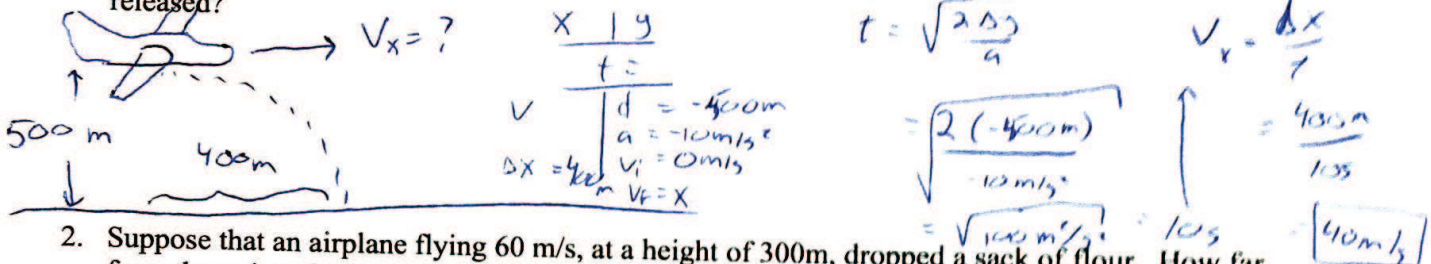 released?
Vx = ?
500 m
400m
x | y
t =
V
d = -500m
a = -10m/s²
Δx = 400m
Vi = 0m/s
Vf = X
t = √(2Δy/a)
= √(2(-500m)/-10m/s²)
= √(100 m²/s²) = 10s
Vx = Δx/t
= 400m/10s
= 40m/s
2. Suppose that an airplane flying 60 m/s, at a height of 300m, dropped a sack of flour. How far